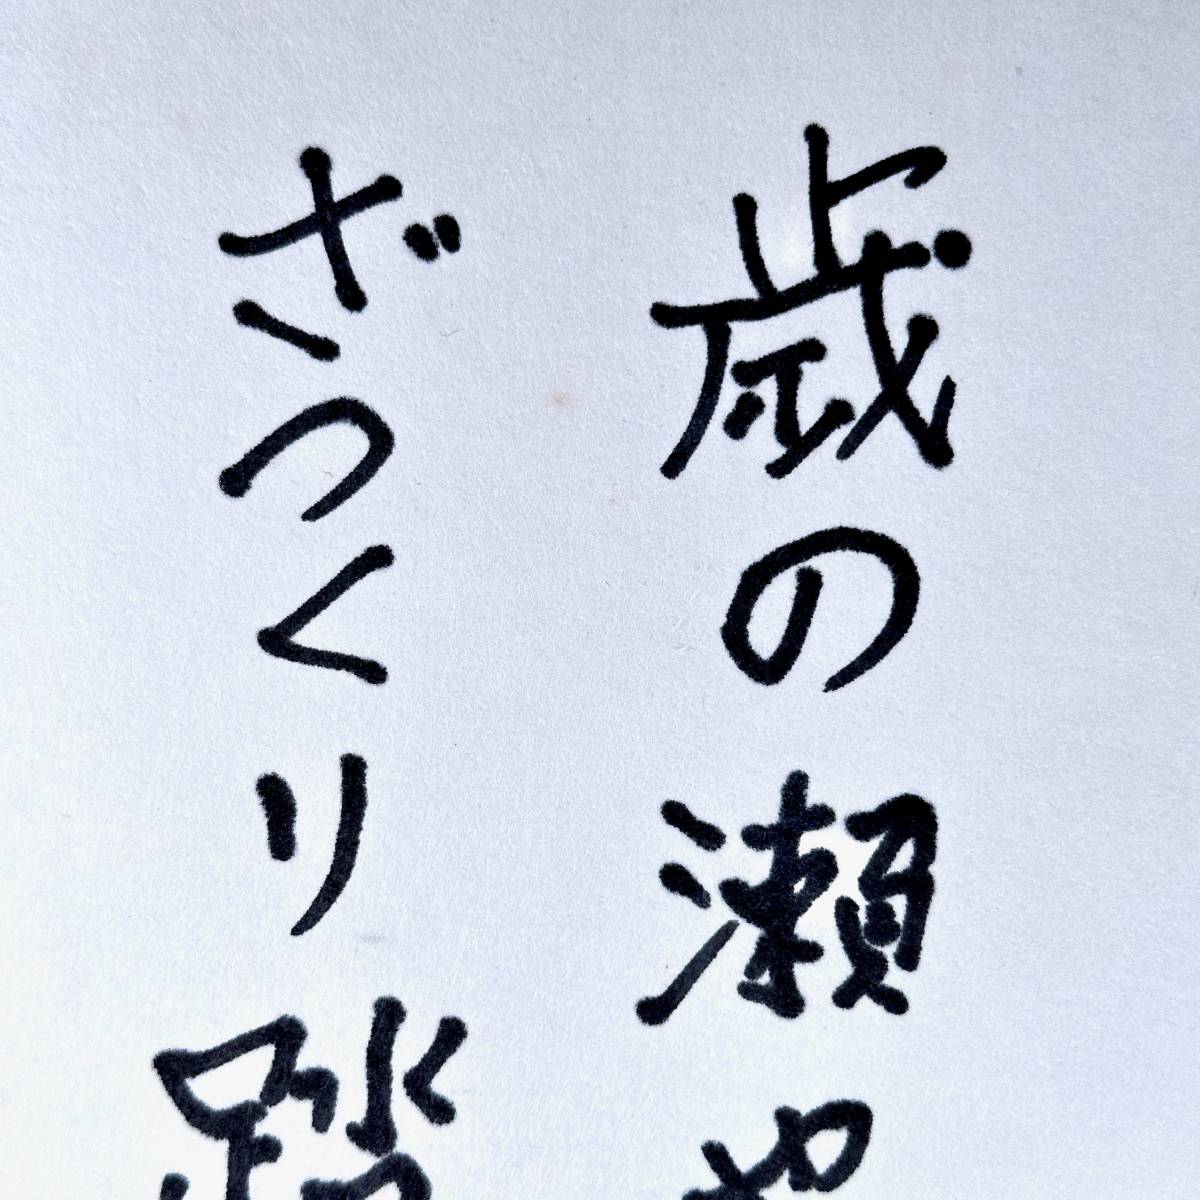 歳の瀬や
ざつくり踏